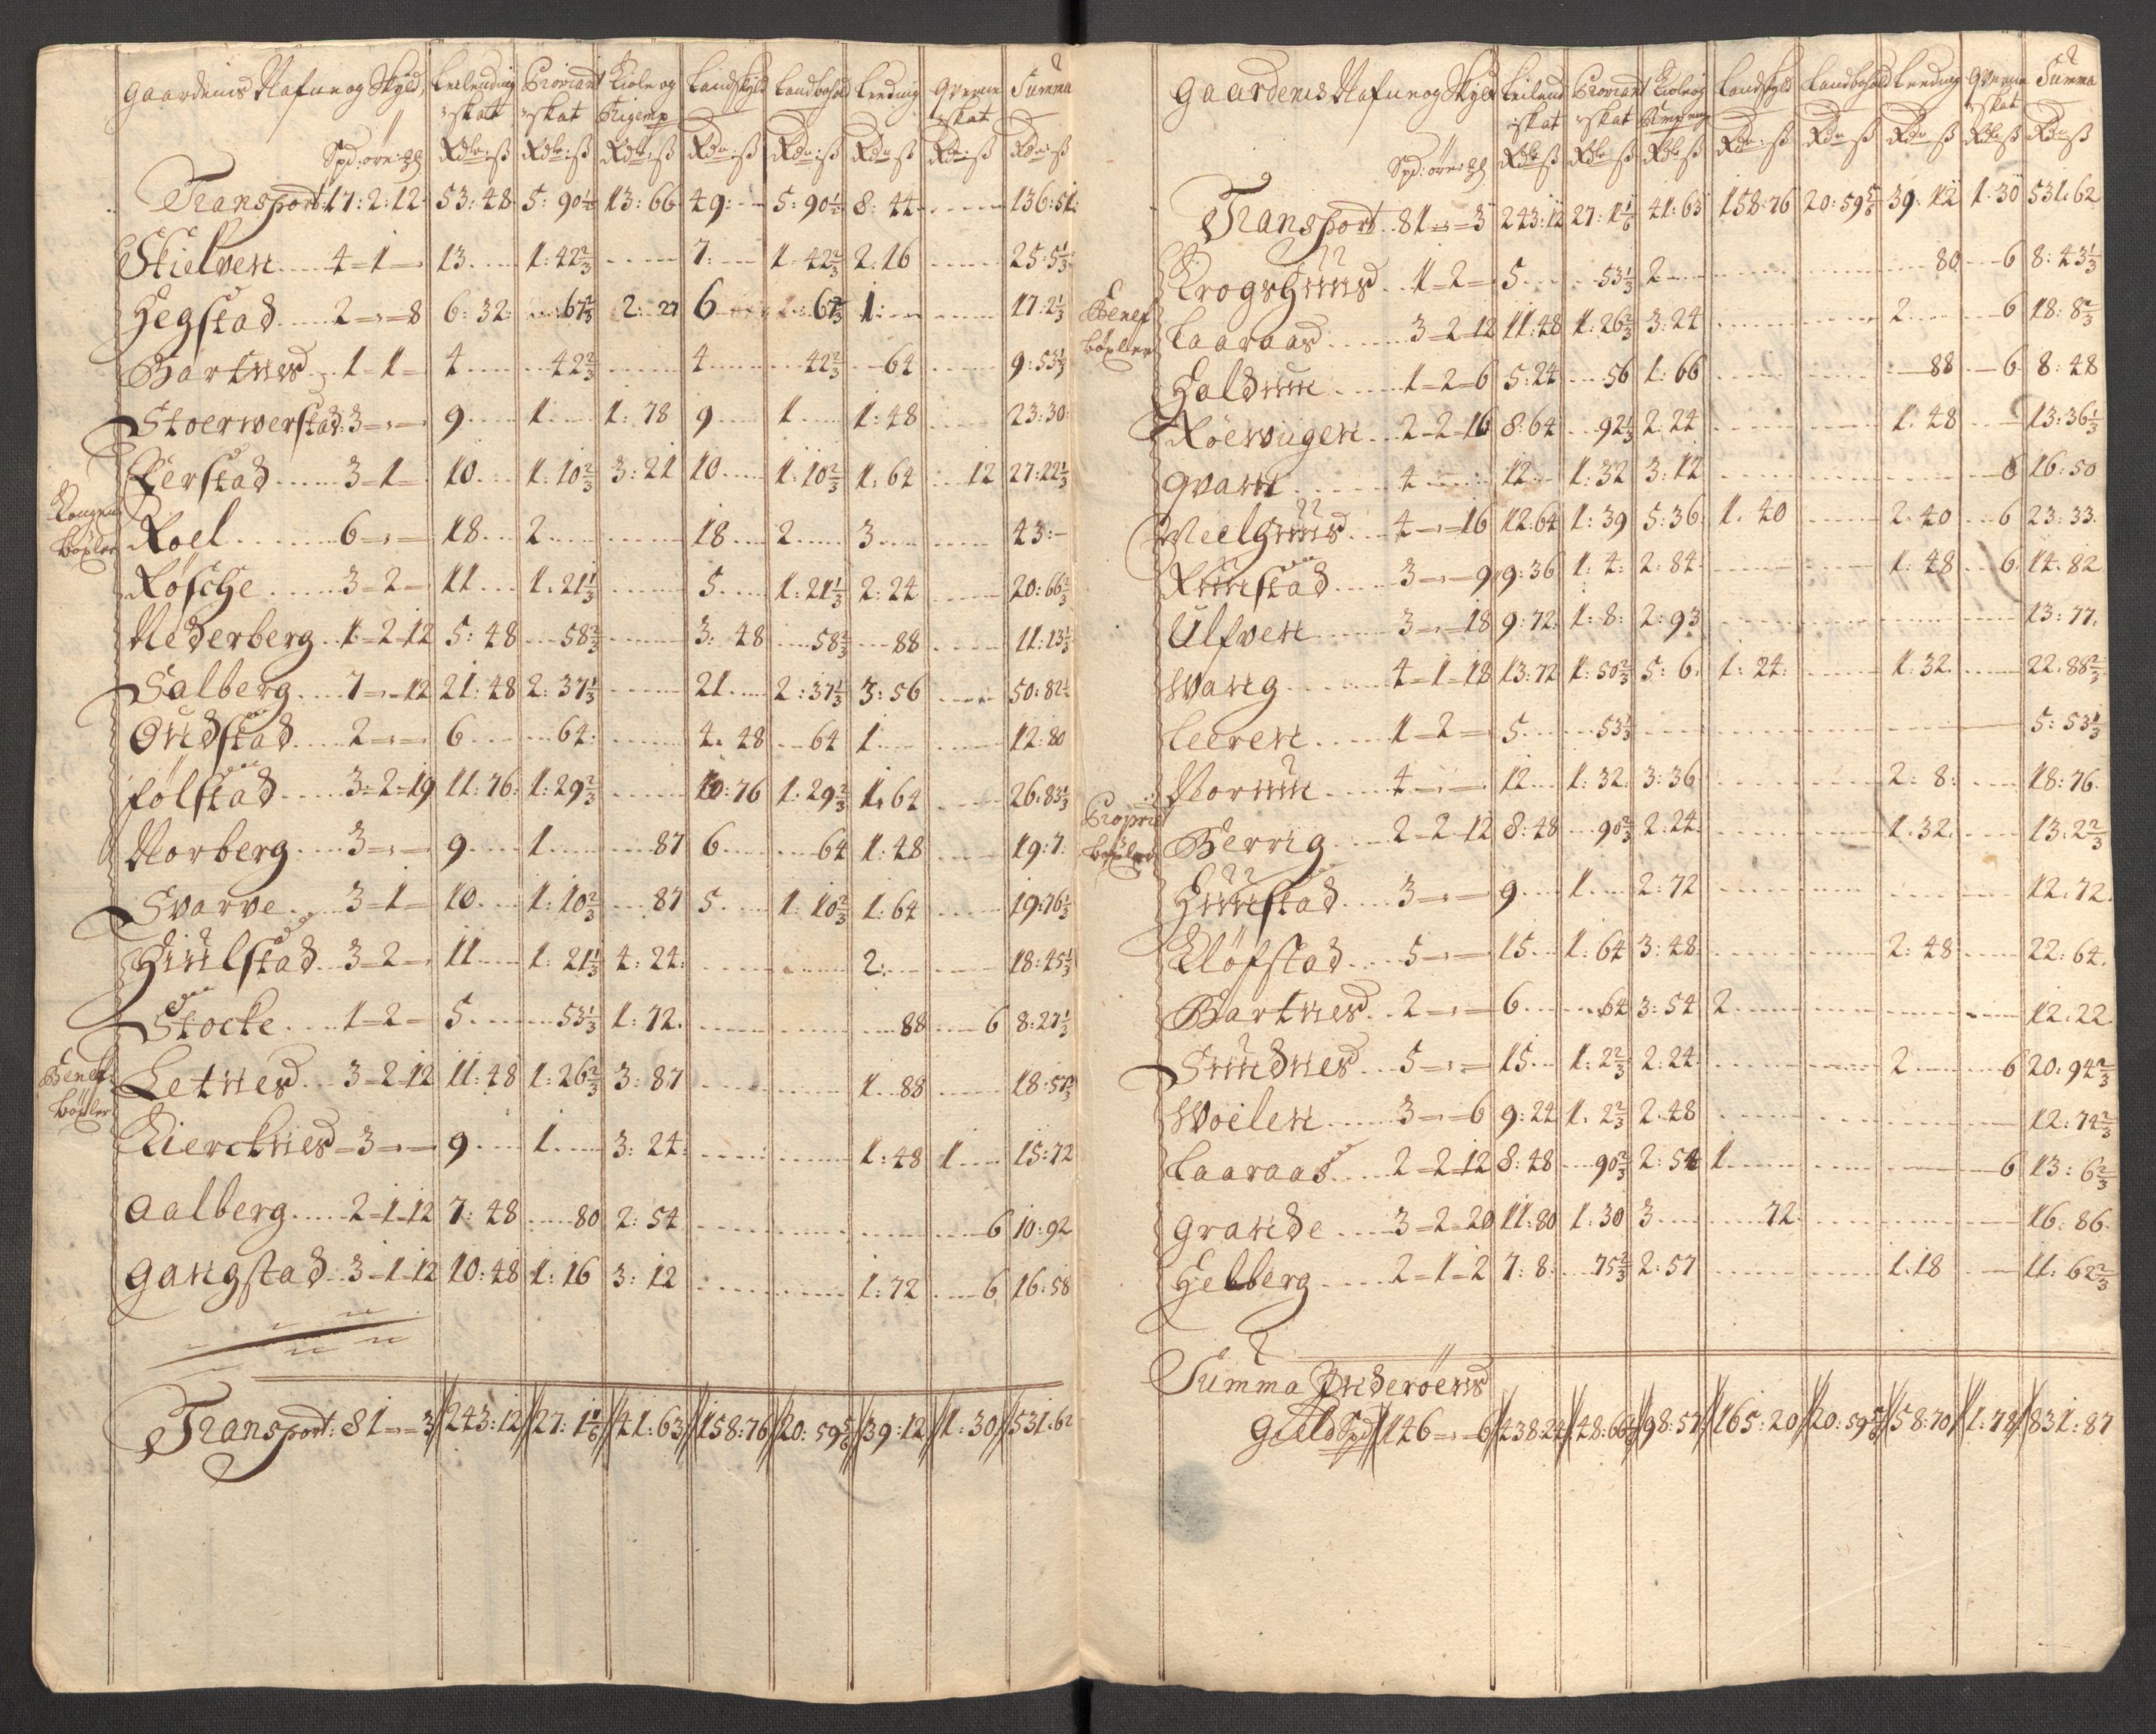 Gaardenis Nafne og Skyld Leilending Proviant Kiole og Landskyld Landbohold Leeding Qverne Summa
skat skat skat
Spd: öre: Rdr: ß Rdr: ß Rdr: ß Rdr: ß Rdr: ß Rdr: ß Rdr: ß Rdr: ß
Transport: 17:2:12 53:48 5:90½ 13:66 49: 5:90½ 8:44 136:51
Skielven 4-1- 13 1:42⅔ 7: 1:42⅔ 2:16 25:5⅓
Hegstad 2-"-8 6:32: 67⅔ 2:27 6 67⅔ 1: 17:2⅓
Bartnes 1-1- 4 42⅔ 4 42⅔ 64 9:53⅓
Stoerwerstad: 3-"- 9 1 1:78 9 1 1:48 23:30
Kierstad 3-1- 10 1:10⅔ 3:21 10 1:10⅔ 1:64 12 27:22⅓
Kongen
böxler
Roel 6-"- 18 2 18 2 3 43:-
Rösche 3-2- 11 1:21⅓ 5 1:21⅓ 2:24 20:66⅔
Nederberg 1-2-12 5:48 58⅔ 3:48 58⅔ 88 11:13⅓
Salberg 7-"-12 21:48 2:37⅓ 21 2:37⅓ 3:56 50:82⅔
Ondstad 2-"- 6 64 4:48 64 1 12:80
fölstad 3-2-19 11:76: 1:29⅔ 10:76 1:29⅔ 1:64 26:83⅓
Norberg 3-"- 9 1 87 6 64 1:48 19:7
Svarve 3-1- 10 1:10⅔ 87 5 1:10⅔ 1:64 19:76⅓
Huulstad 3-2- 11 1:21⅓ 4:24: 2: 18:45⅓
Stocke 1-2- 5 53⅓ 1:72 88 6 8:27⅓
Benef:
böxler
Letnes 3-2-12 11:48 1:26⅔ 3:87 1:88 18:57⅔
Kiercknes 3-"- 9 1 3:24: 1:48 1 15:72
Aalberg 2-1-12 7:48 80 2:54 6 10:92
Gangstad 3-1-12 10:48 1:16 3:12 1:72 6 16:58
Transport: 81-"-3 243:12 27:1⅙ 41:63 158:76 20:59⅚ 39:12 1:30 531:62
Gaardenis Nafne og Skyld Leilend Proviant Kiole og Landskyld Landbohold Leeding Qverne Summa
skat skat skat
Spd: öre: Rdr ß Rdr ß Rdr ß Rdr: ß Rdr ß Rdr ß Rdr ß Rdr ß
Transport 81-"-3 243:12 27:1⅙ 41:63 158:76 20:59⅚ 39:12 1:30 531:62
Krogshuus 1-2- 5 53⅓ 2 80 6 8:43⅓
Benef
böxler
Laaraas 3-2-12 11:48 1:26⅔ 3:24 2 6 18:8⅔
Haldum 1-2-6 5:24 56 1:66 88 6 8:48
Röewigen 2-2-16 8:64 92⅓ 2:24 1:48 13:36⅓
Qvam 4 12 1:32 3:12 6 16:50
Meelhuus 4-"-16 12:64 1:39 5:36 1:40 2:40 6 23:33
Ruustad 3-"-9 9:36 1:4: 2:84 1:48 6 14:82
Ulfven 3-"-18 9:72 1:8: 2:93 13:77
Wang 4-1-18 13:72 1:50⅔ 5:6 1:24: 1:32 22:88⅔
Leeren 1-2- 5 53⅓ 5:53⅓
Norum 4-"- 12 1:32 3:36 2:8: 18:76
Propriet
böxler
Berrig 2-2-12 8:48 90⅔ 2:24 1:32 13:2⅔
Huustad 3-"- 9 1 2:72 12:72
Klöfstad 5-"- 15 1:64 3:48 2:48 22:64
Bartnes 2-"- 6 64 3:54 2 12:22
Sundnes 5-"- 15 1:2⅔ 2:24 2 6 20:94⅔
Woelen 3-"-6 9:24 1:2⅔ 2:48 12:74⅔
Laaraas 2-2-12 8:48 90⅔ 2:54 1 6 13:6⅔
Grande 3-2-20 11:80 1:30 3 72 16:86
Helberg 2-1-2 7:8: 75⅔ 2:57 1:18 11:62⅔
Summa Inderöens
Gield Spd 146-"-6 438:24 48:66⅙ 98:57 165:20 20:59⅚ 58:70 1:78 831:87